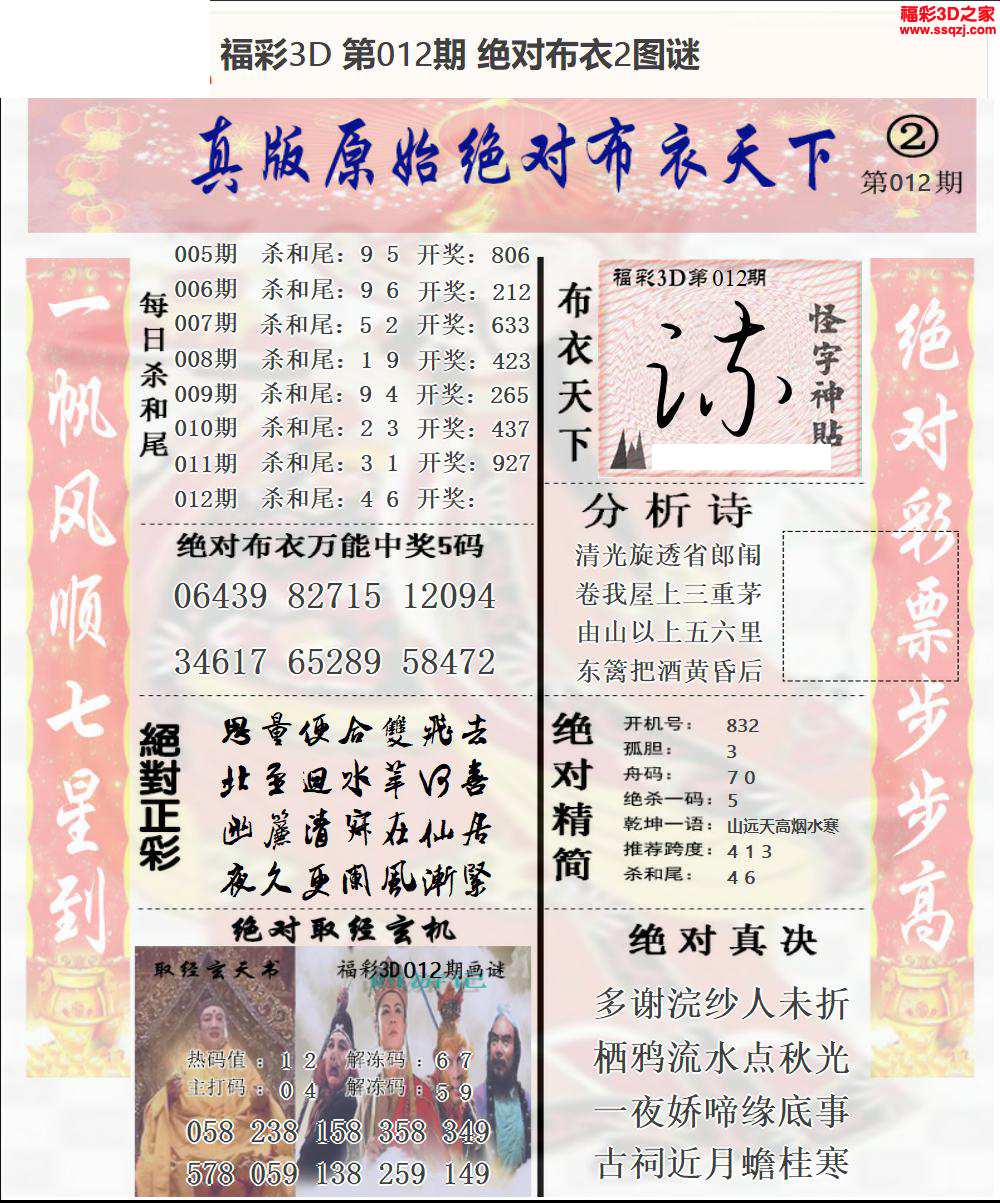 福彩3D之家
www.ssqzj.com
福彩3D 第012期 绝对布衣2图谜
真版原始绝对布衣天下
②
第012期
一帆风顺七星到
每日杀和尾
005期 杀和尾：9 5 开奖：806
006期 杀和尾：9 6 开奖：212
007期 杀和尾：5 2 开奖：633
008期 杀和尾：1 9 开奖：423
009期 杀和尾：9 4 开奖：265
010期 杀和尾：2 3 开奖：437
011期 杀和尾：3 1 开奖：927
012期 杀和尾：4 6 开奖：
绝对布衣万能中奖5码
06439 82715 12094
34617 65289 58472
絕對正彩
思量便合雙飛去
北至迴水苹河喜
幽簾清寐在仙居
夜久更闌風漸緊
绝对取经玄机
取经玄天书
福彩3D012期画谜
热码值：1 2 解冻码：6 7
主打码：0 4 解冻码：5 9
058 238 158 358 349
578 059 138 259 149
布衣天下
福彩3D第012期
怪字神贴
分析诗
清光旋透省郎闱
卷我屋上三重茅
由山以上五六里
东篱把酒黄昏后
绝对精简
开机号： 832
孤胆： 3
舟码： 7 0
绝杀一码： 5
乾坤一语： 山远天高烟水寒
推荐跨度： 4 1 3
杀和尾： 4 6
绝对真决
多谢浣纱人未折
栖鸦流水点秋光
一夜娇啼缘底事
古祠近月蟾桂寒
绝对彩票步步高